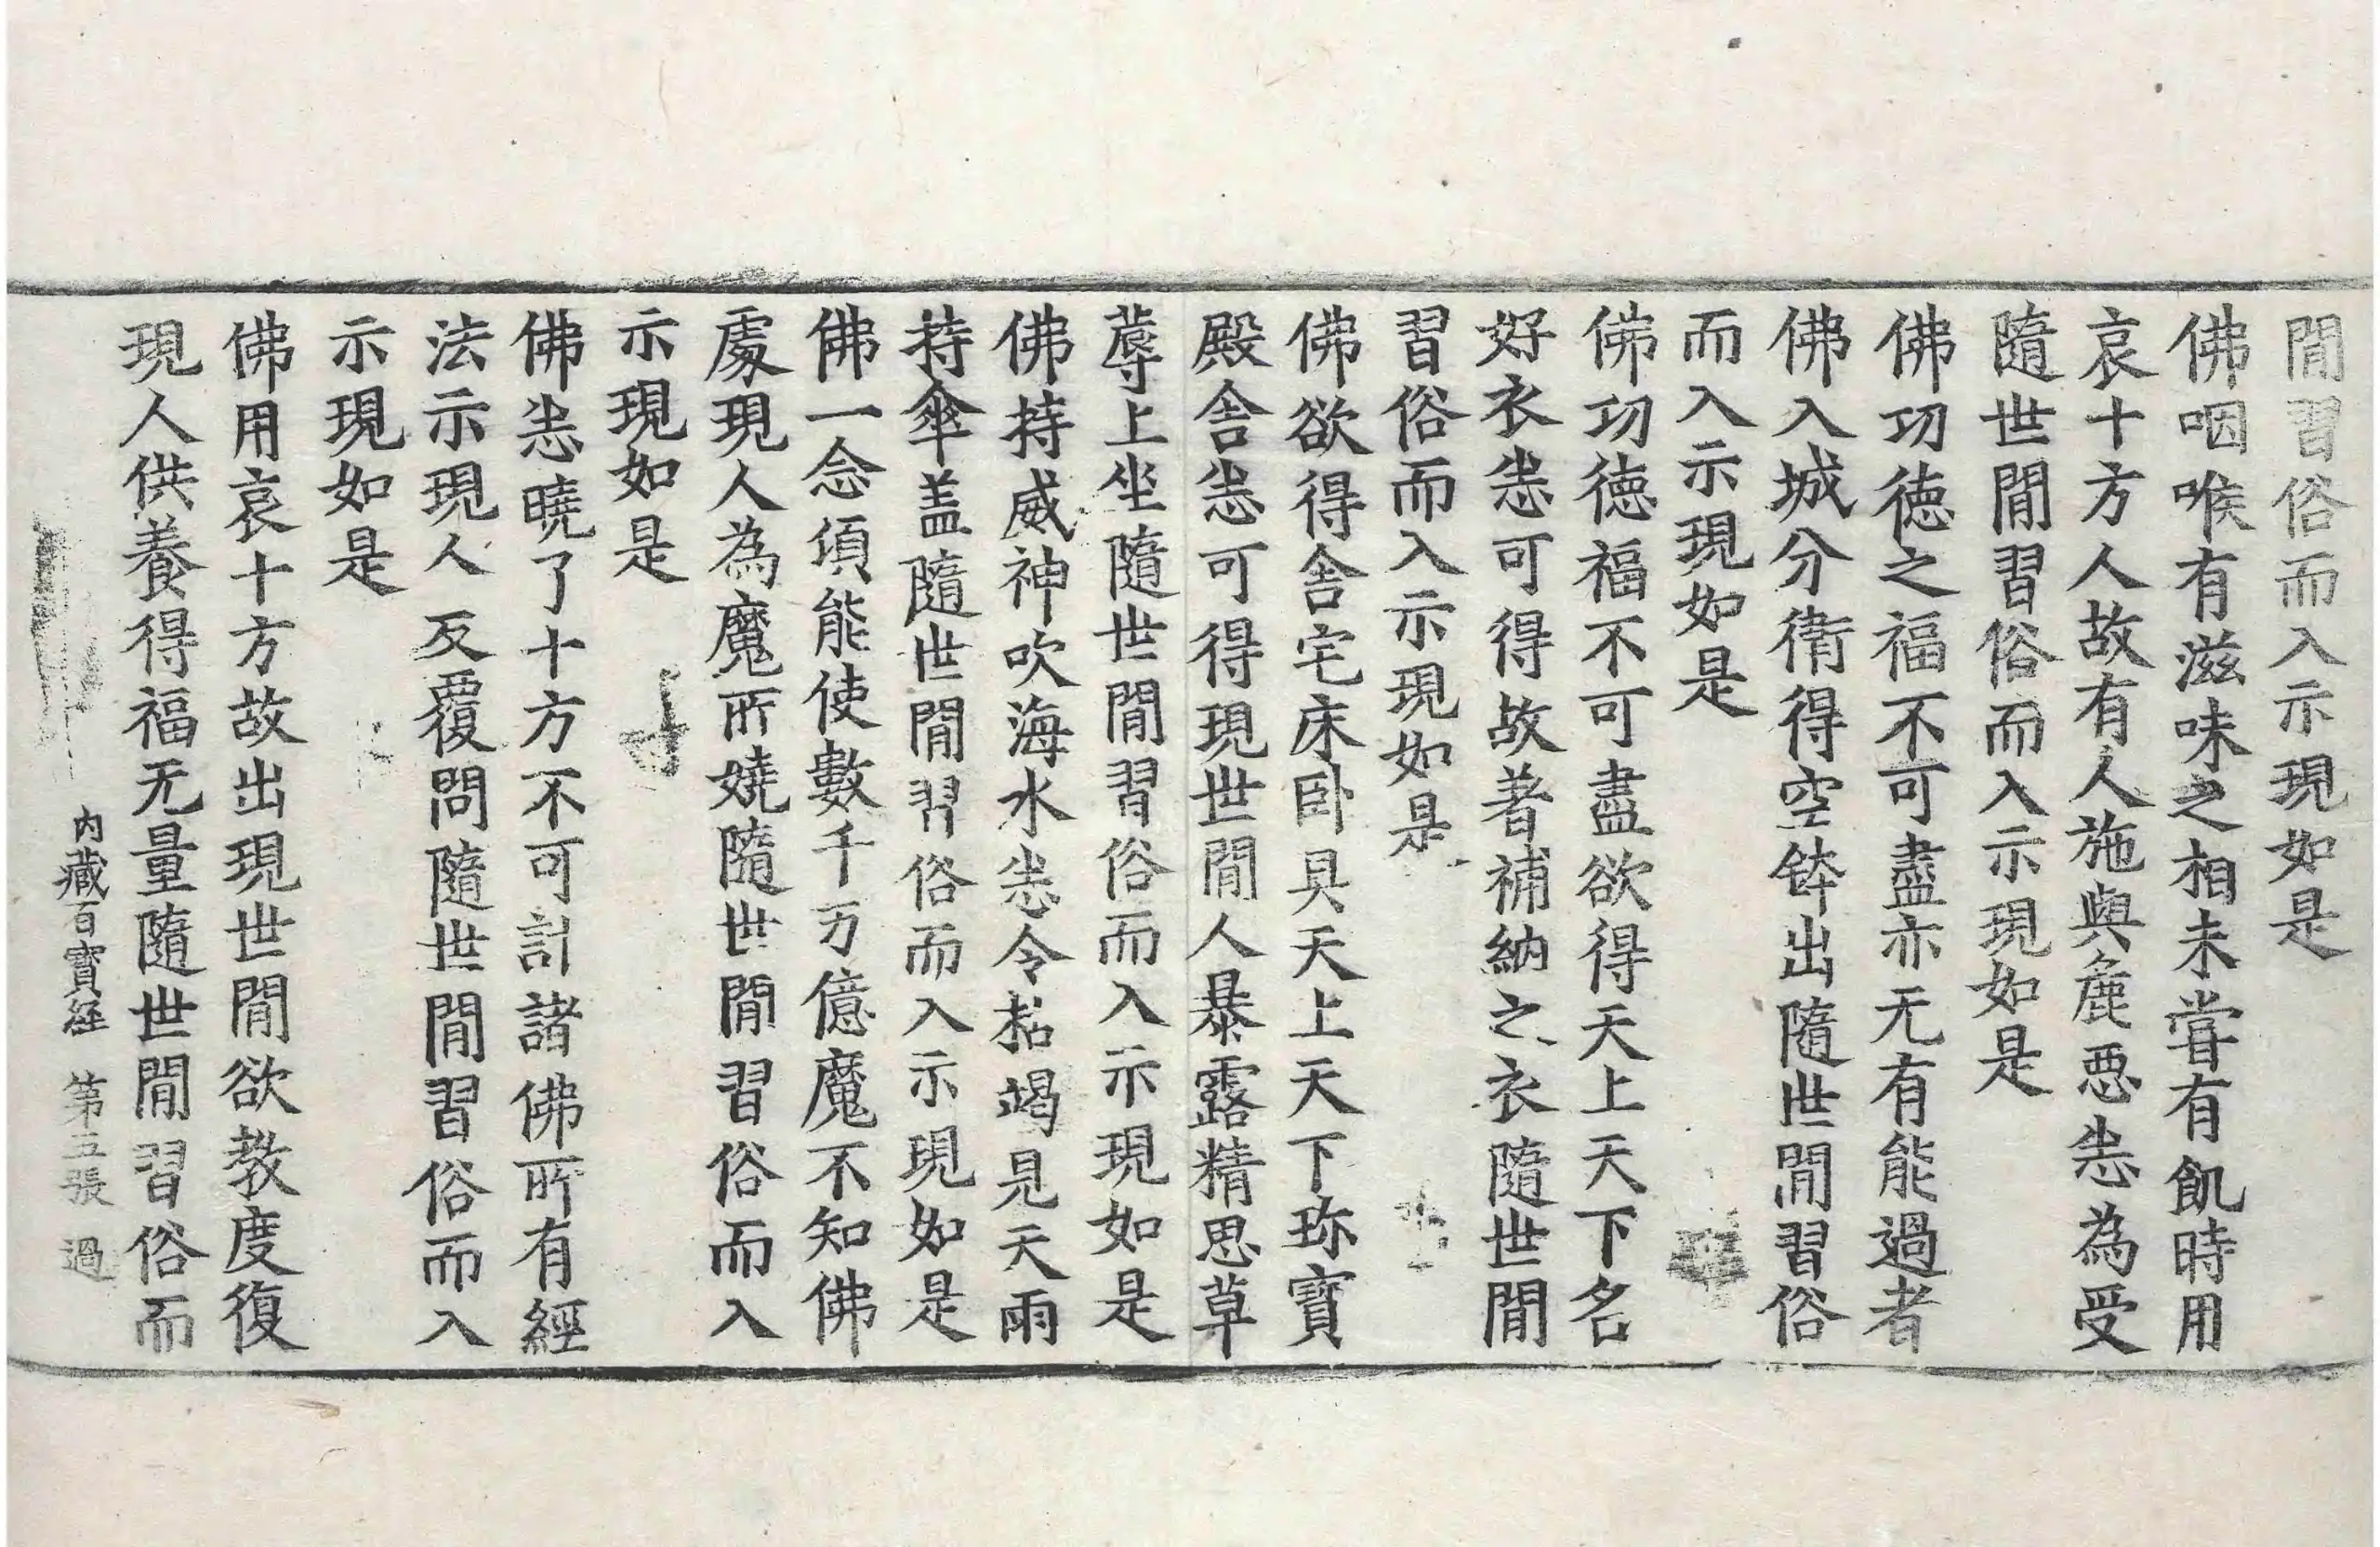 閒習俗而入示現如是
佛咽喉有滋味之相未甞有飢時用
哀十方人故有人施與麁惡悉為受
隨世閒習俗而入示現如是
佛功德之福不可盡亦无有能過者
佛入城分衛得空鉢出隨世閒習俗
而入示現如是
佛功德福不可盡欲得天上天下名
好衣悉可得故著補納之衣隨世閒
習俗而入示現如是
佛欲得舍宅床卧具天上天下珎寶
殿舍悉可得現世閒人暴露精思草
蓐上坐隨世閒習俗而入示現如是
佛持威神吹海水悉令枯竭見天雨
持傘盖隨世閒習俗而入示現如是
佛一念頃能使數千万億魔不知佛
處現人為魔所嬈隨世閒習俗而入
示現如是
佛悉曉了十方不可計諸佛所有經
法示現人反覆問隨世閒習俗而入
示現如是
佛用哀十方故出現世閒欲教度復
現人供養得福无量隨世閒習俗而
内藏百寶經 第五張 過